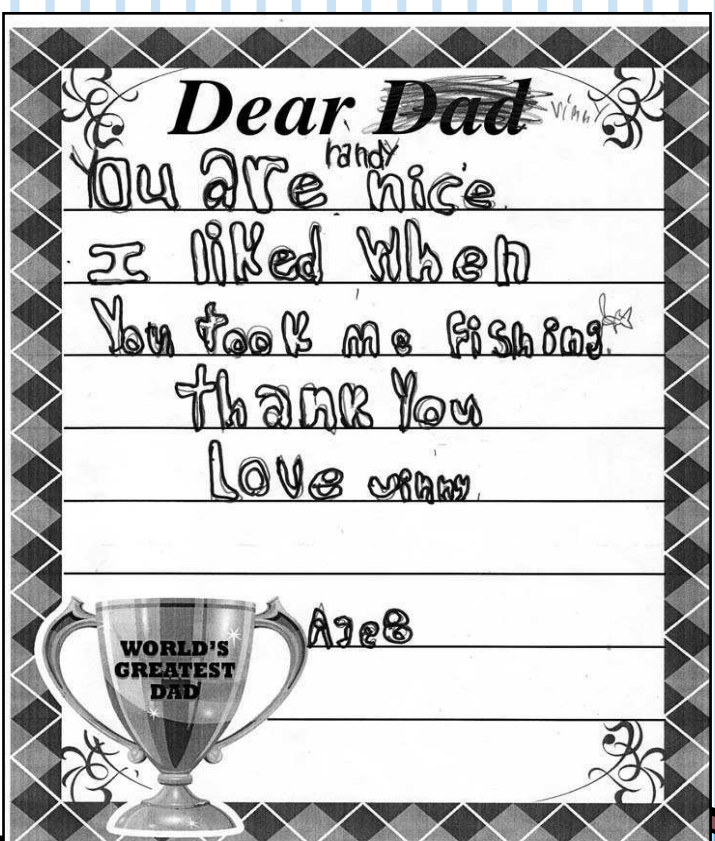 Dear Dad vinny
randy
You are nice.
I liked When
You took me fishing.
thank You
Love vinny.
Age 8
WORLD'S
GREATEST
DAD